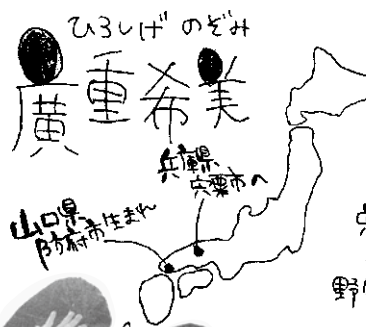 ひろしげ のぞみ
廣重希美
兵庫県
宍粟市へ
山口県
防府市生まれ